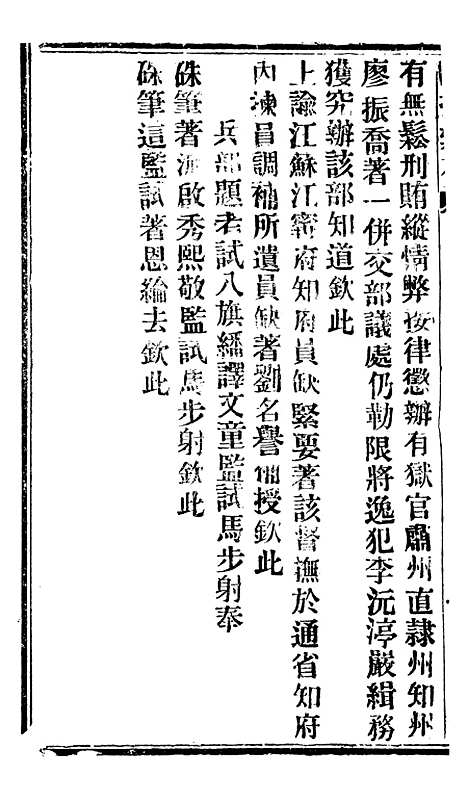 有無鬆刑賄縱情弊按律懲辦有獄官肅州直隸州知州
廖振喬著一併交部議處仍勒限將逸犯李沅渟嚴緝務
獲究辦該部知道欽此
上諭江蘇江寧府知府員缺緊要著該督撫於通省知府
內揀員調補所遺員缺著劉名譽補授欽此
兵部題考試八旗繙譯文童監試馬步射奉
硃筆著派啟秀熙敬監試馬步射欽此
硃筆這監試著恩綸去欽此